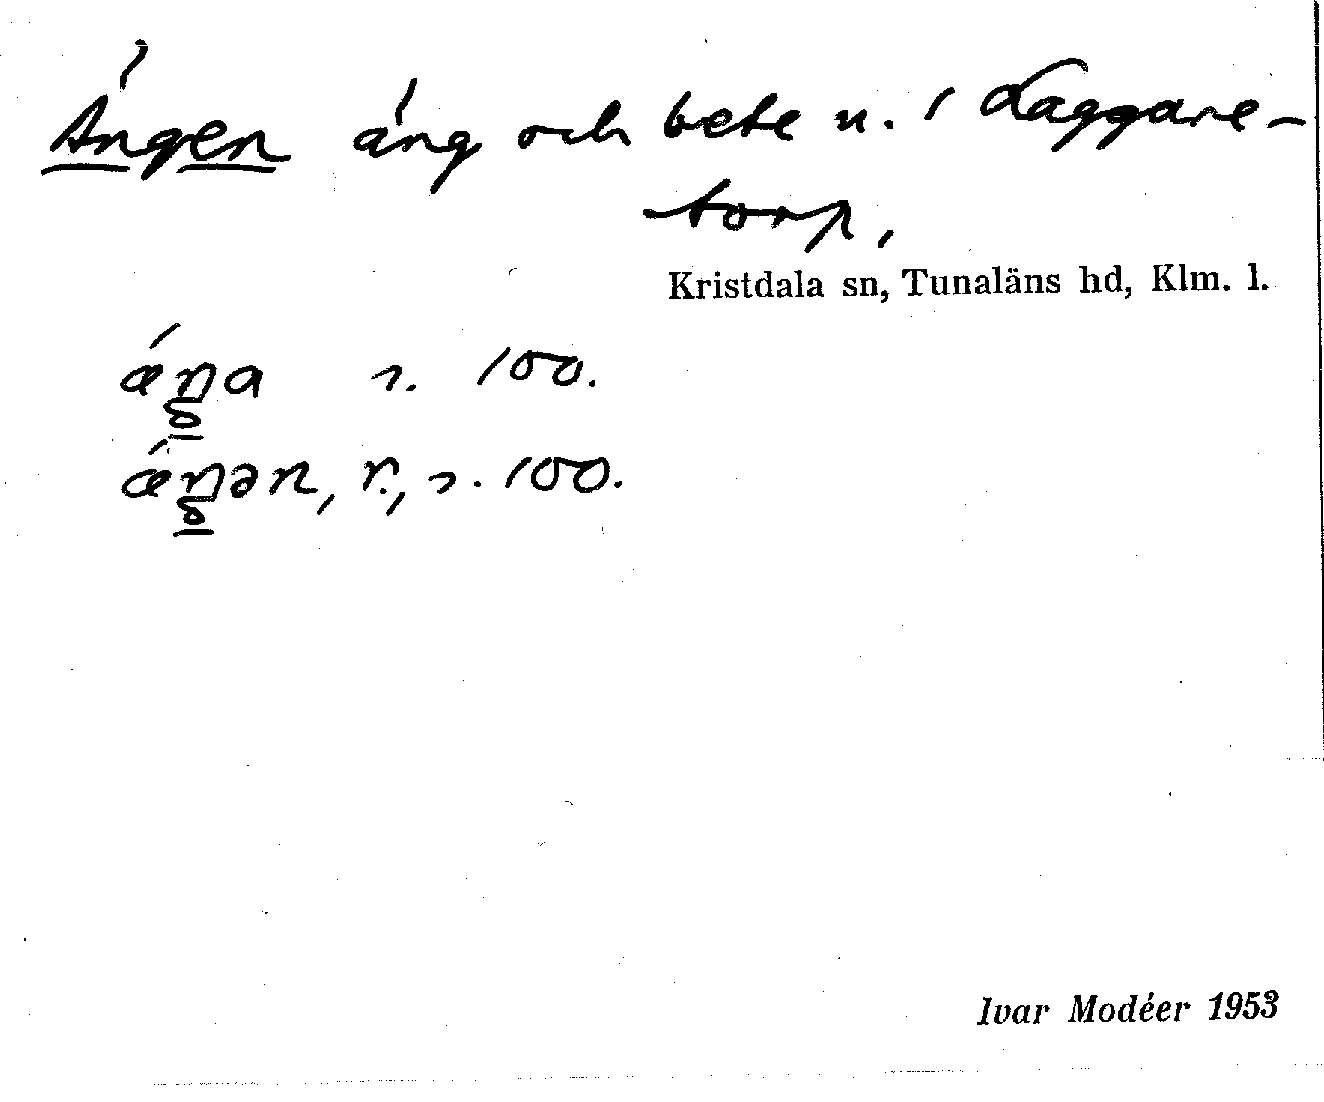 Ängen äng och bete n. i Laggare-
torp,
Kristdala sn, Tunaläns hd, Klm. l.
ǽŋa 100.
ǽŋən, r., 100.
Ivar Modéer 1953